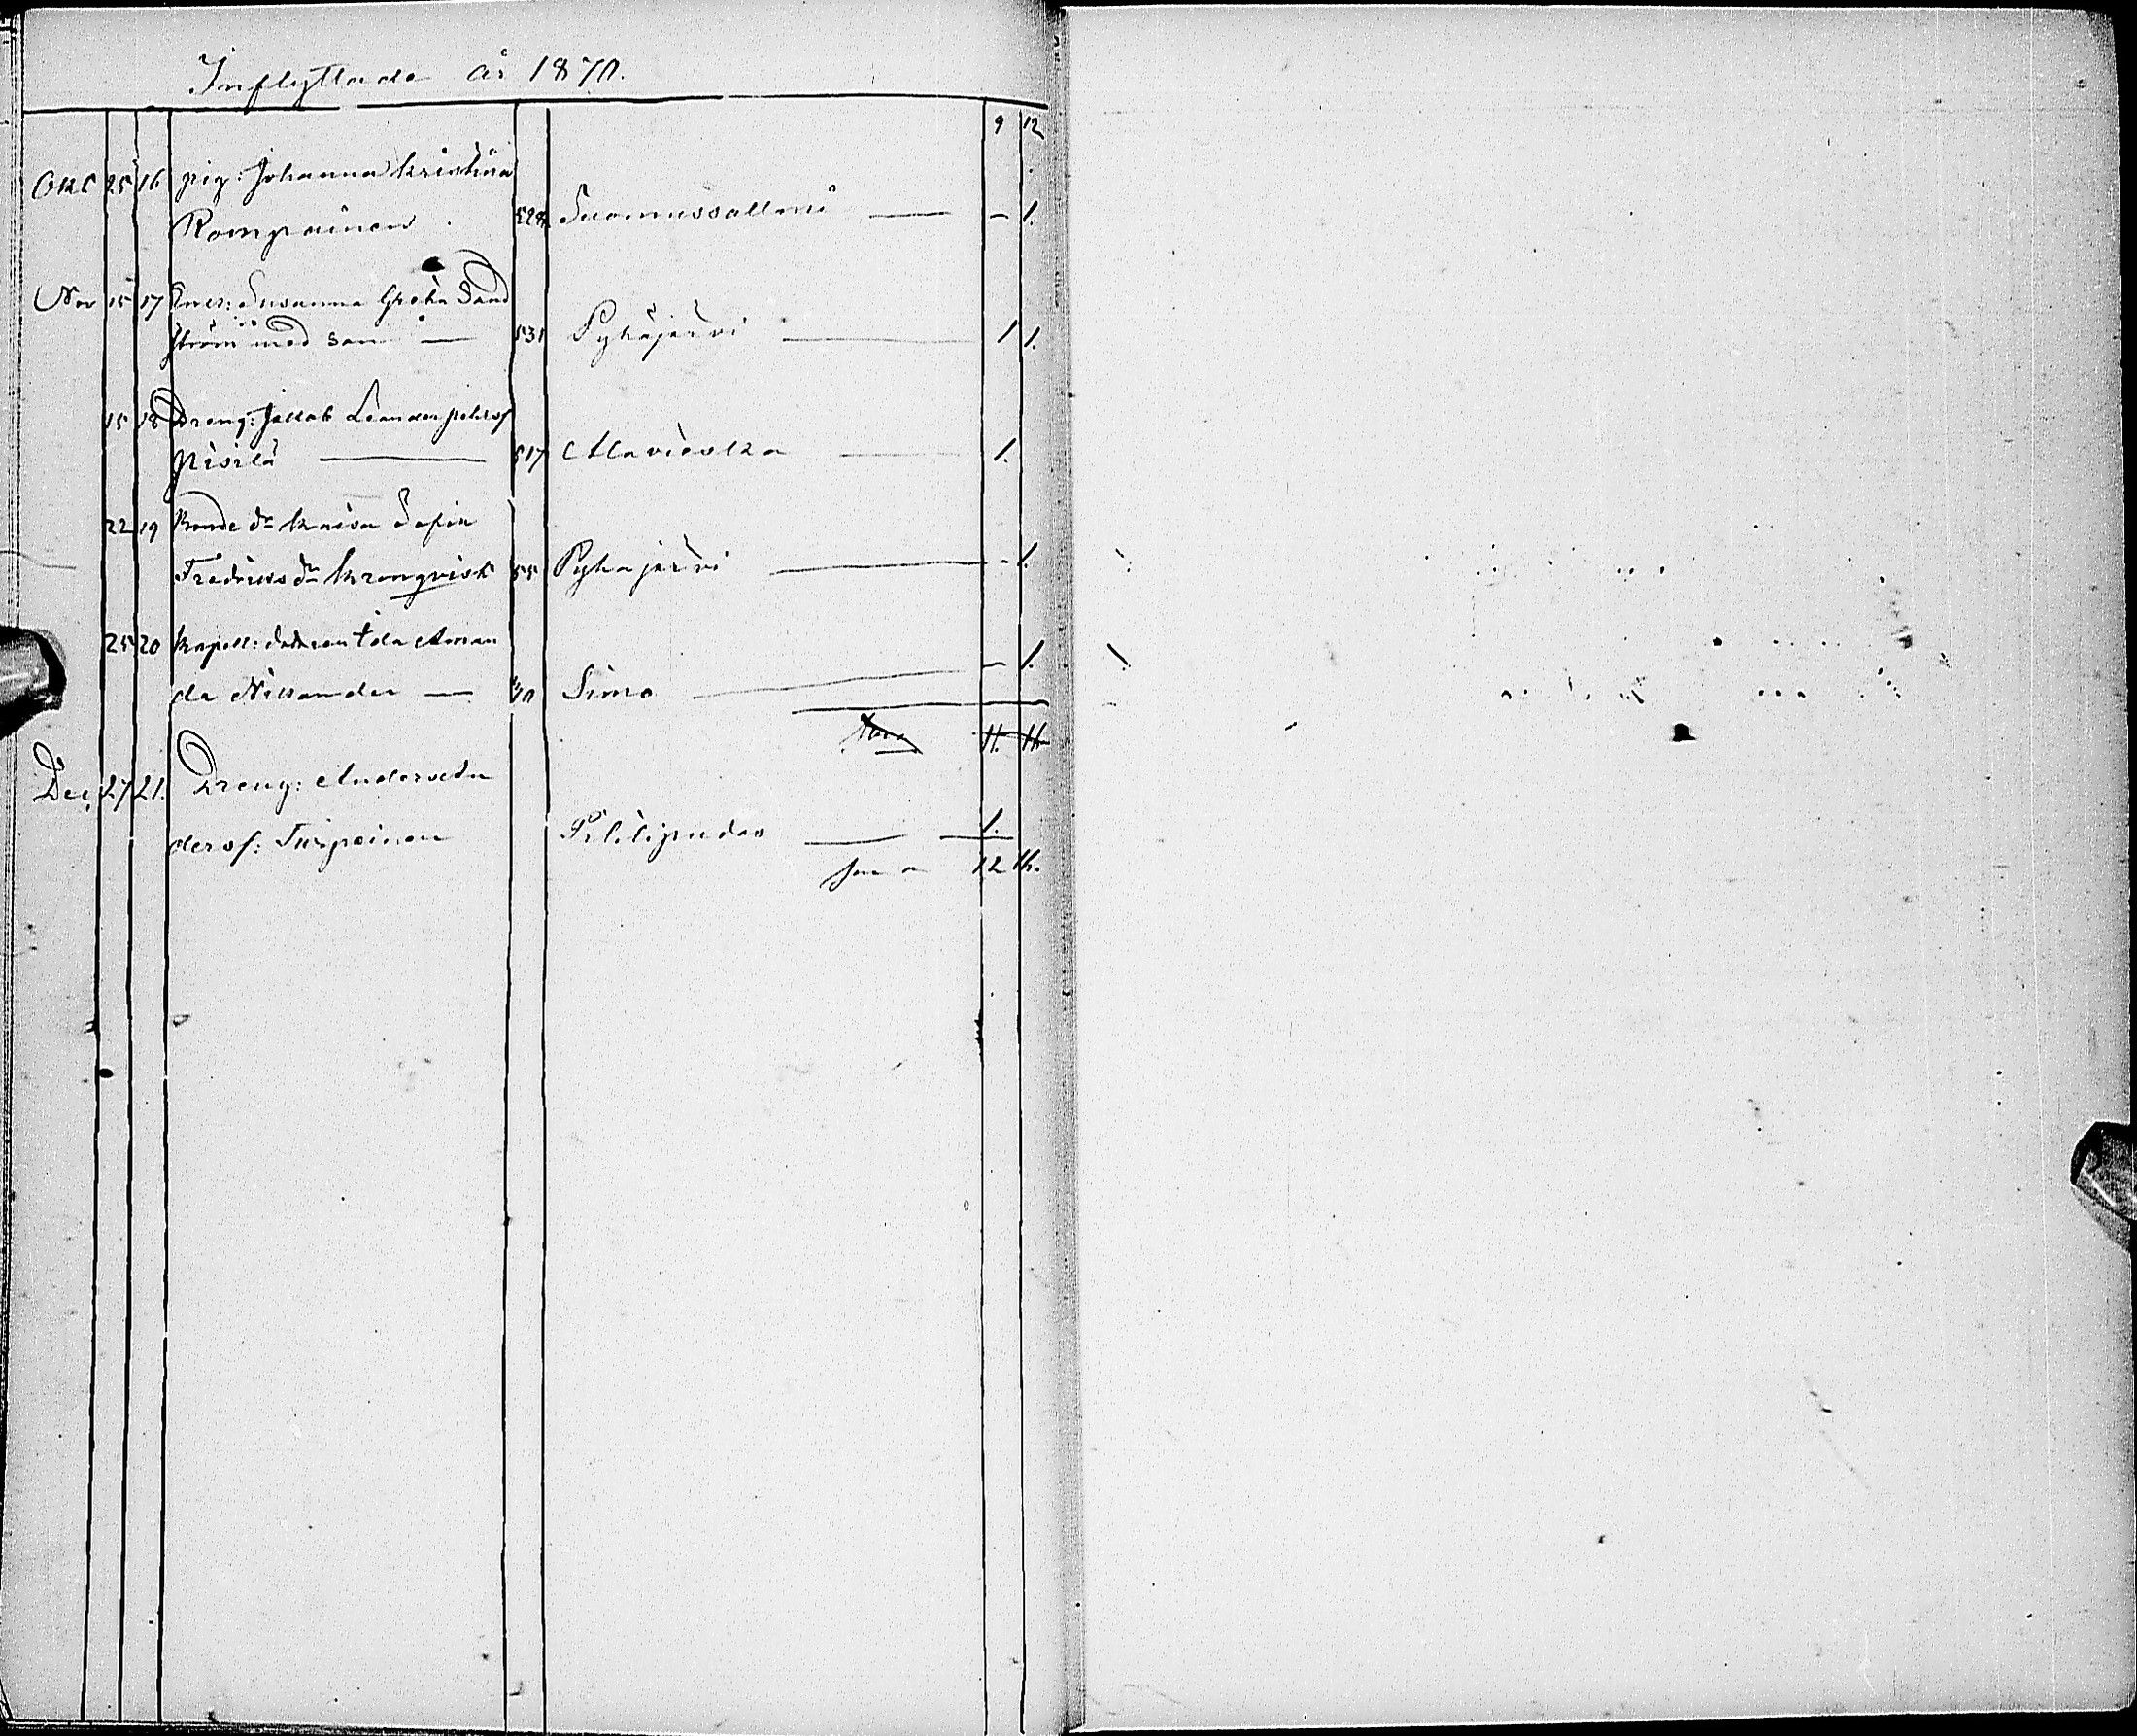 Inflyttade år 1870.
9 12
Okt 25 16 pig: Johanna Kristina
Romppainen 528 Suomussalmi — - 1.
Nov 15 17 Enk: Susanna Greta Sand
ström med son — 531 Pyhäjärvi — 1 1.
15 18 Dreng: Jakob Leander
Pisilä — 517 Alavieska — 1.
22 19 Bonde dr Kaisa Sofia
Fredriks dr Kronqvist 55 Pyhäjärvi — - 1.
25 20 Kapell: Ida Aman
da Nikander — 30 Simo — - 1.
11. 16
Dec. 27 21. Dreng: Anders An
ders s: Turpeinen Pulkkila — 1.
Summa 12 16.